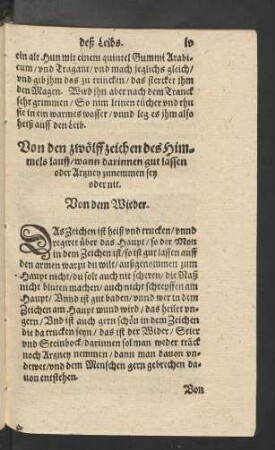 deß Leibs. lv
ein alt Hun mit einem quintel Gummi Arabi-
cum/ vnd Tragant/ vnd mach jeglichs gleich/
vnd gib jhm das zu trincken/ das stercket jhm
den Magen. Wird jhn aber nach dem Tranck
sehr grimmen/ So nim leinen tücher vnd thu
sie in ein warmes wasser/ vnnd leg es jhm also
heiß auff den Leib.
Von den zwölff zeichen des Him-
mels lauff/ wann darinnen gut lassen
oder Artzney zunemmen sey
oder nit.
Von dem Wieder.
DAs Zeichen ist heiß vnd trucken/ vnnd
regiert über das Haupt/ so der Mon
in dem Zeichen ist/ so ist gut lassen auff
den armen warzu du wilt/ außgenommen zum
Haupt nicht/ du solt auch nit scheren/ die Naß
nicht bluten machen/ auch nicht schrepffen am
Haupt/ Vnnd ist gut baden/ vnnd wer in dem
Zeichen am Haupt wund wird/ das heilet vn-
gern/ Vnd ist auch gern schön in dem Zeichen
die da trucken seyn/ das ist der Wider/ Stier
vnd Steinbock/ darinnen sol man weder träck
noch Artzney nemmen/ dann man dauon vn-
dewet/ vnd dem Menschen gern gebrechen da-
uon entstehen.
Von